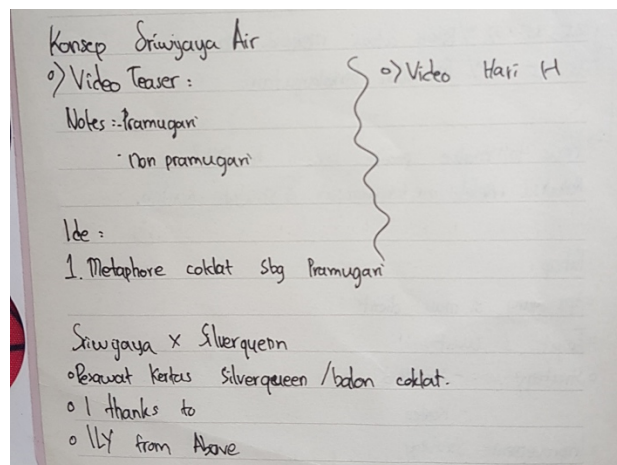 Konsep Sriwijaya Air
o) Video Teaser :
Notes : - Pramugari
- non pramugari
Ide :
1. Metaphore coklat sbg Pramugari
Sriwijaya x Silverqueen
o Pesawat kertas Silverqueen / balon coklat.
o I thanks to
o ILY from Above
o) Video Hari H